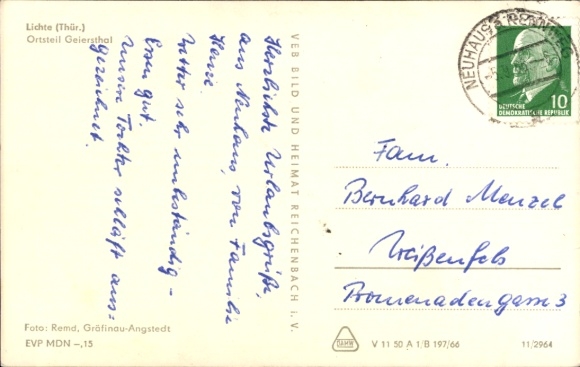 Lichte (Thür.)
Ortsteil Geiersthal
Herzlichste Urlaubsgrüße,
aus Neuhaus, von Familie
Wetter sehr unbeständig –
Essen gut.
Unsere Tochter schläft aus=
gezeichnet.
Foto: Remd, Gräfinau-Angstedt
EVP MDN –,15
VEB BILD UND HEIMAT REICHENBACH i. V.
NEUHAUS
10
DEUTSCHE
DEMOKRATISCHE REPUBLIK
Fam.
Bernhard Menzel
Weißenfels
Promenadengasse 3
DAMW
V 11 50 A 1/B 197/66
11/2964